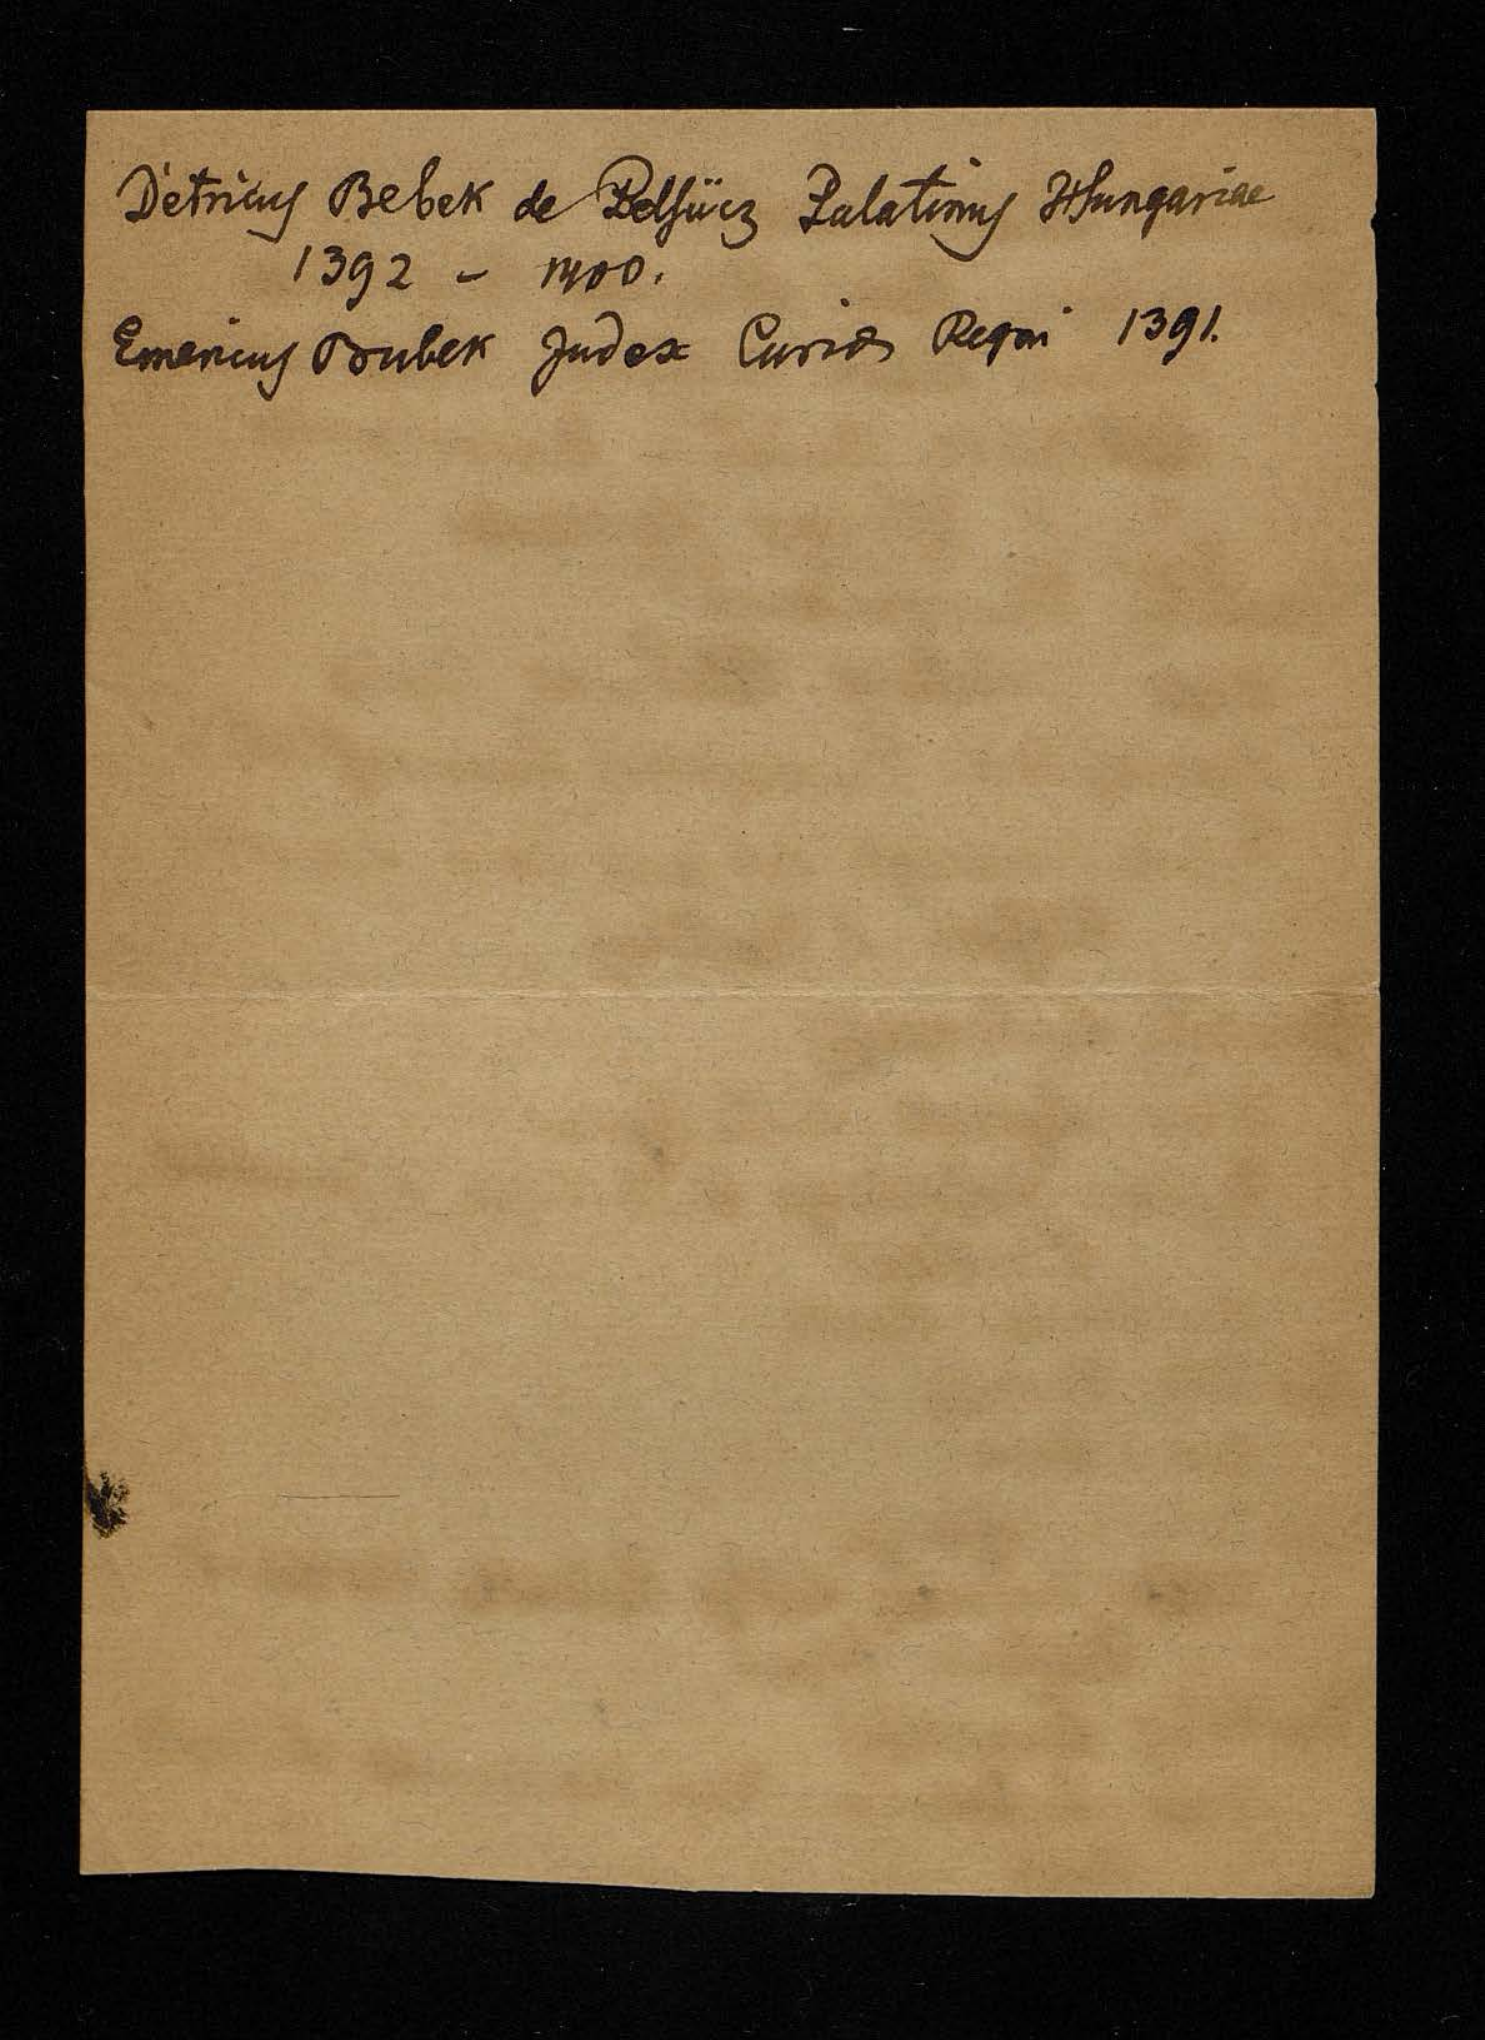 Detricus Bebek de Pelsücz Palatinus Hungariae
1392 – 1400.
Emericus Bubek Judex Curiae Regni 1391.